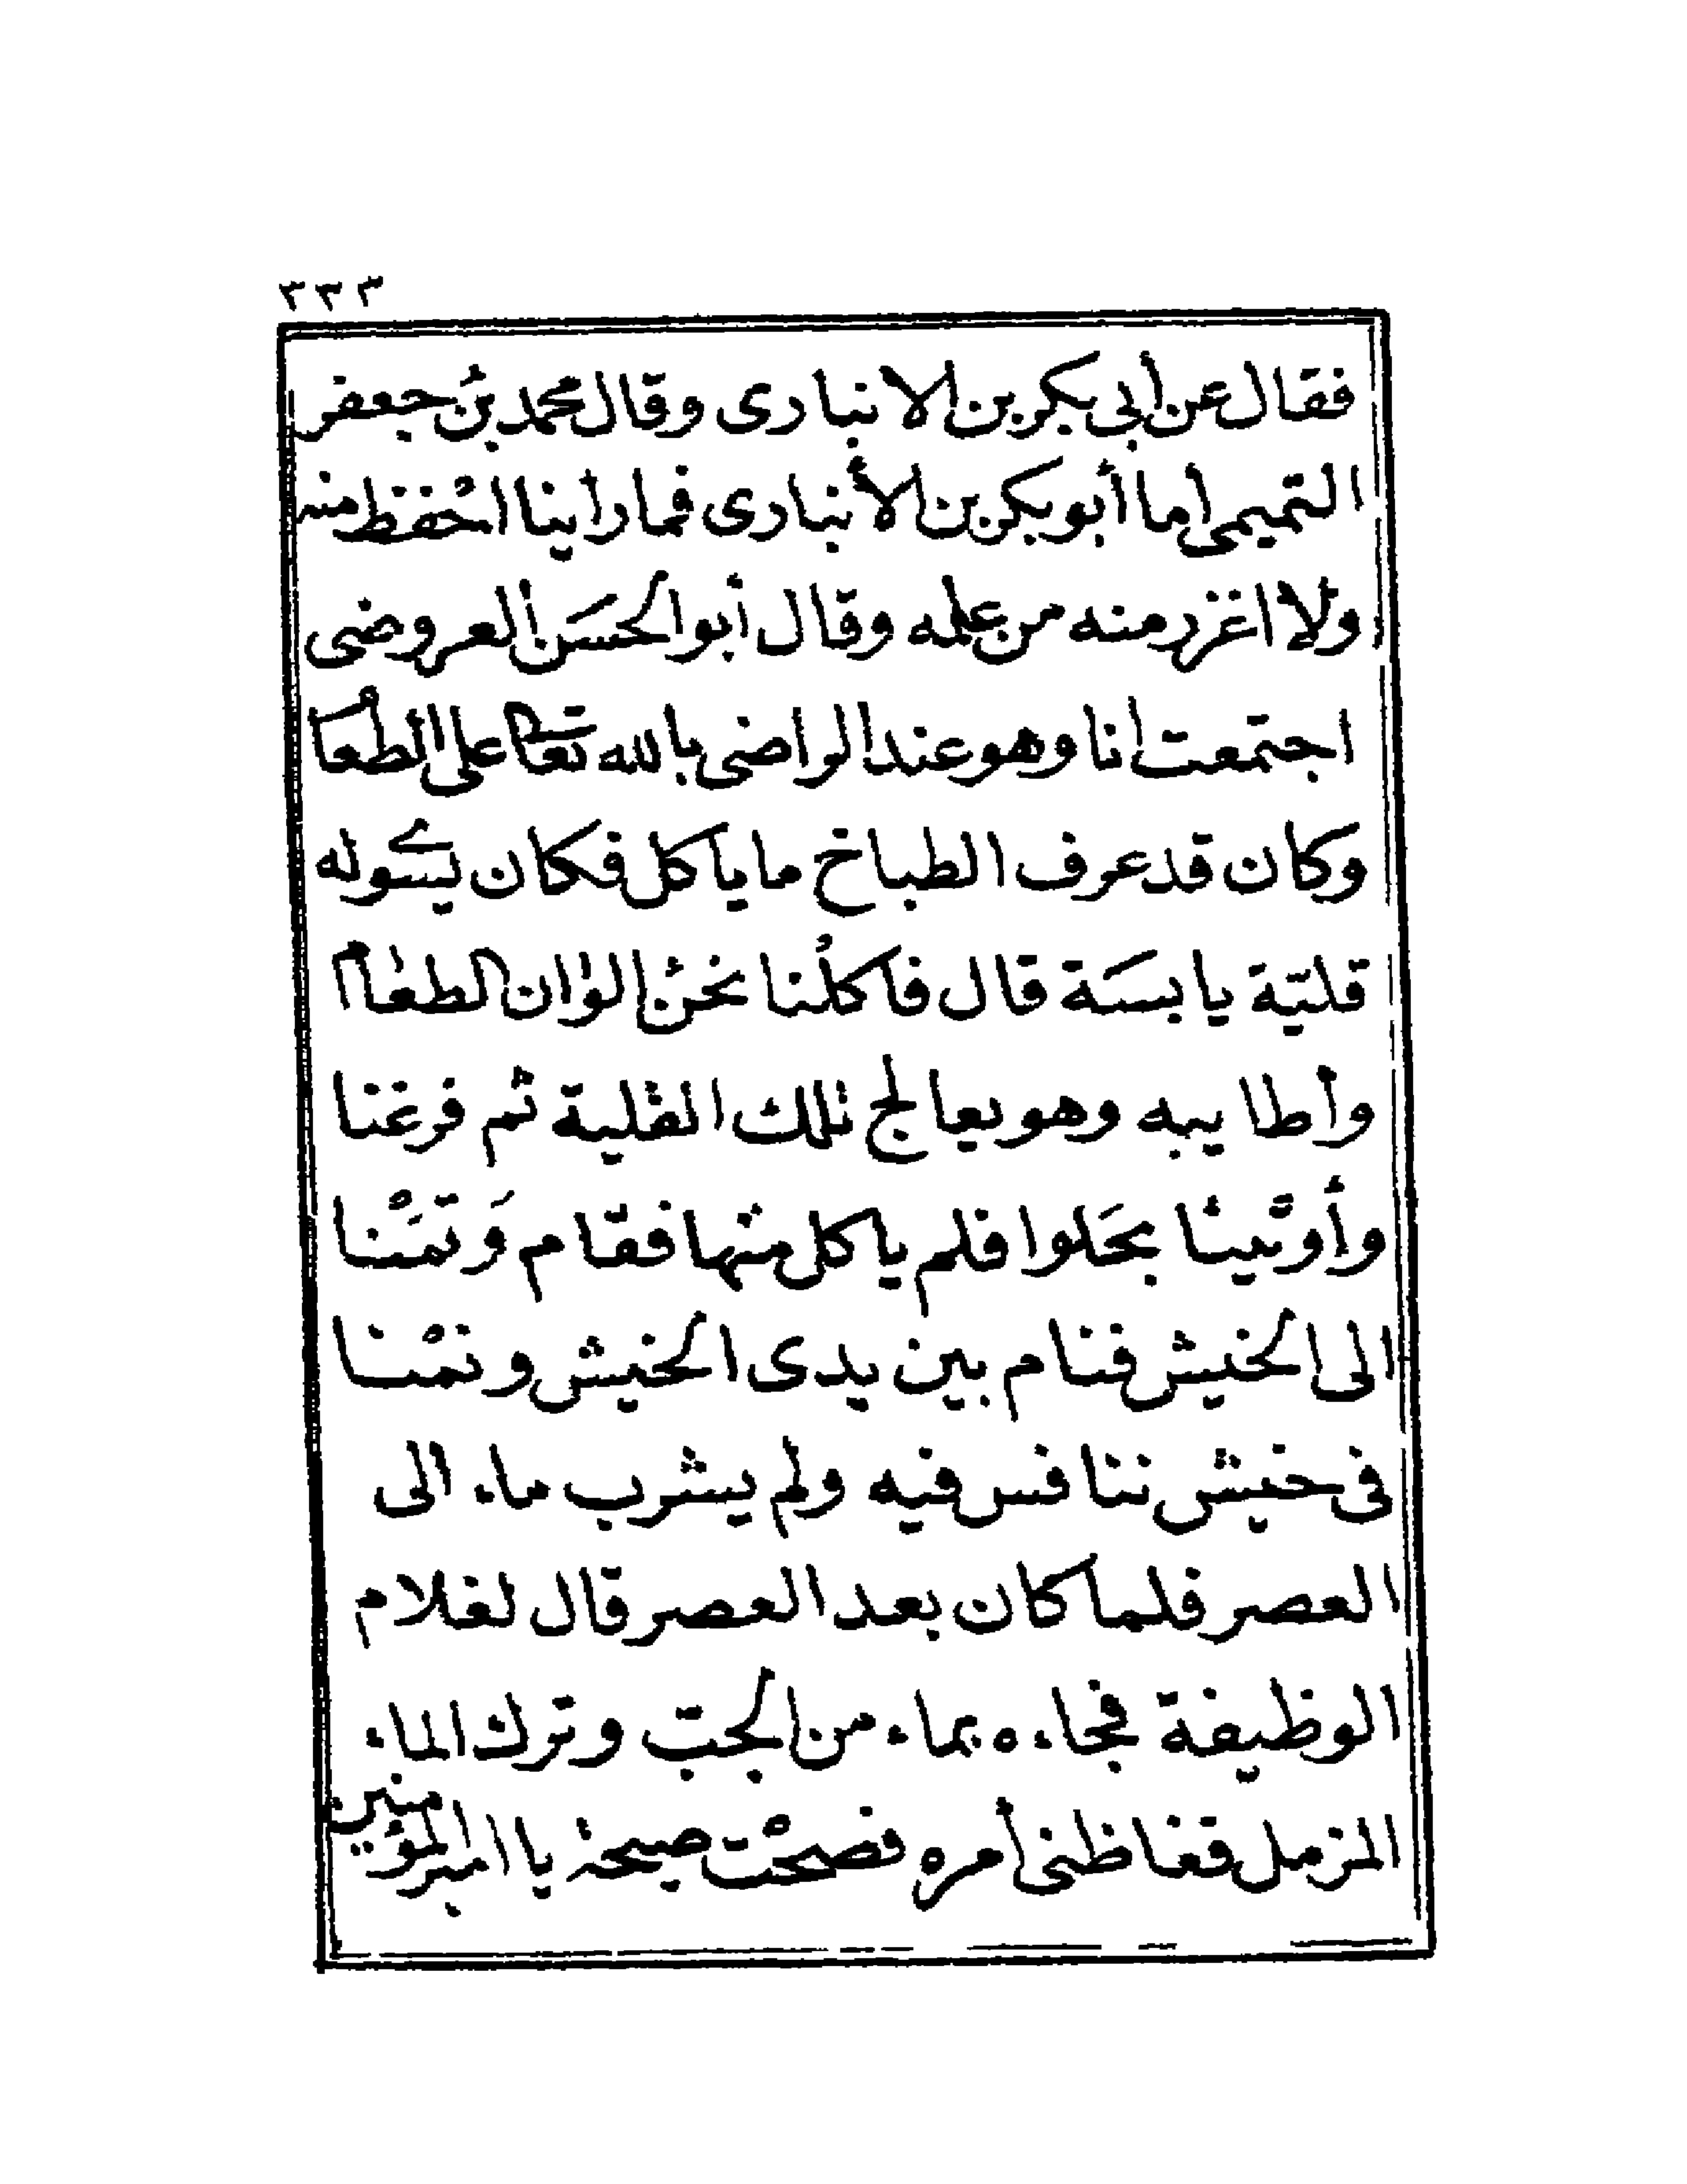 ٣٣٣
فقال عن أبى بكر بن الانبارى وقال محمد بنُ جعفر
التميمى اما أبو بكر بن الأنبارى فما راينا احْفظ منه
ولا اغزر منه من علمه وقال أبو الحسَن العروضى
اجتمعت انا وهو عند الراضى بالله تعا على الطعا
وكان قد عرف الطباخ ما ياكل فكان يسوله
قليّة يابسَة قال فاكلنا نحن الوان الطعام
وأطايبه وهو يعالج تلك القلية ثم فرغنا
وأوتينا بحَلوا فلم ياكل منها فقام وَقمَنْا
الى الخيش فنام بين يدى الخيش ونمْنا
فى خيش ننافس فيه ولم يشرب ماء الى
العصر فلما كان بعد العصر قال لغلام
الوظيفة فجاءه بماء من الجب وترك الماء
المزمل فغاظنى أمره فصحْت صيحة يا امير المؤمنين